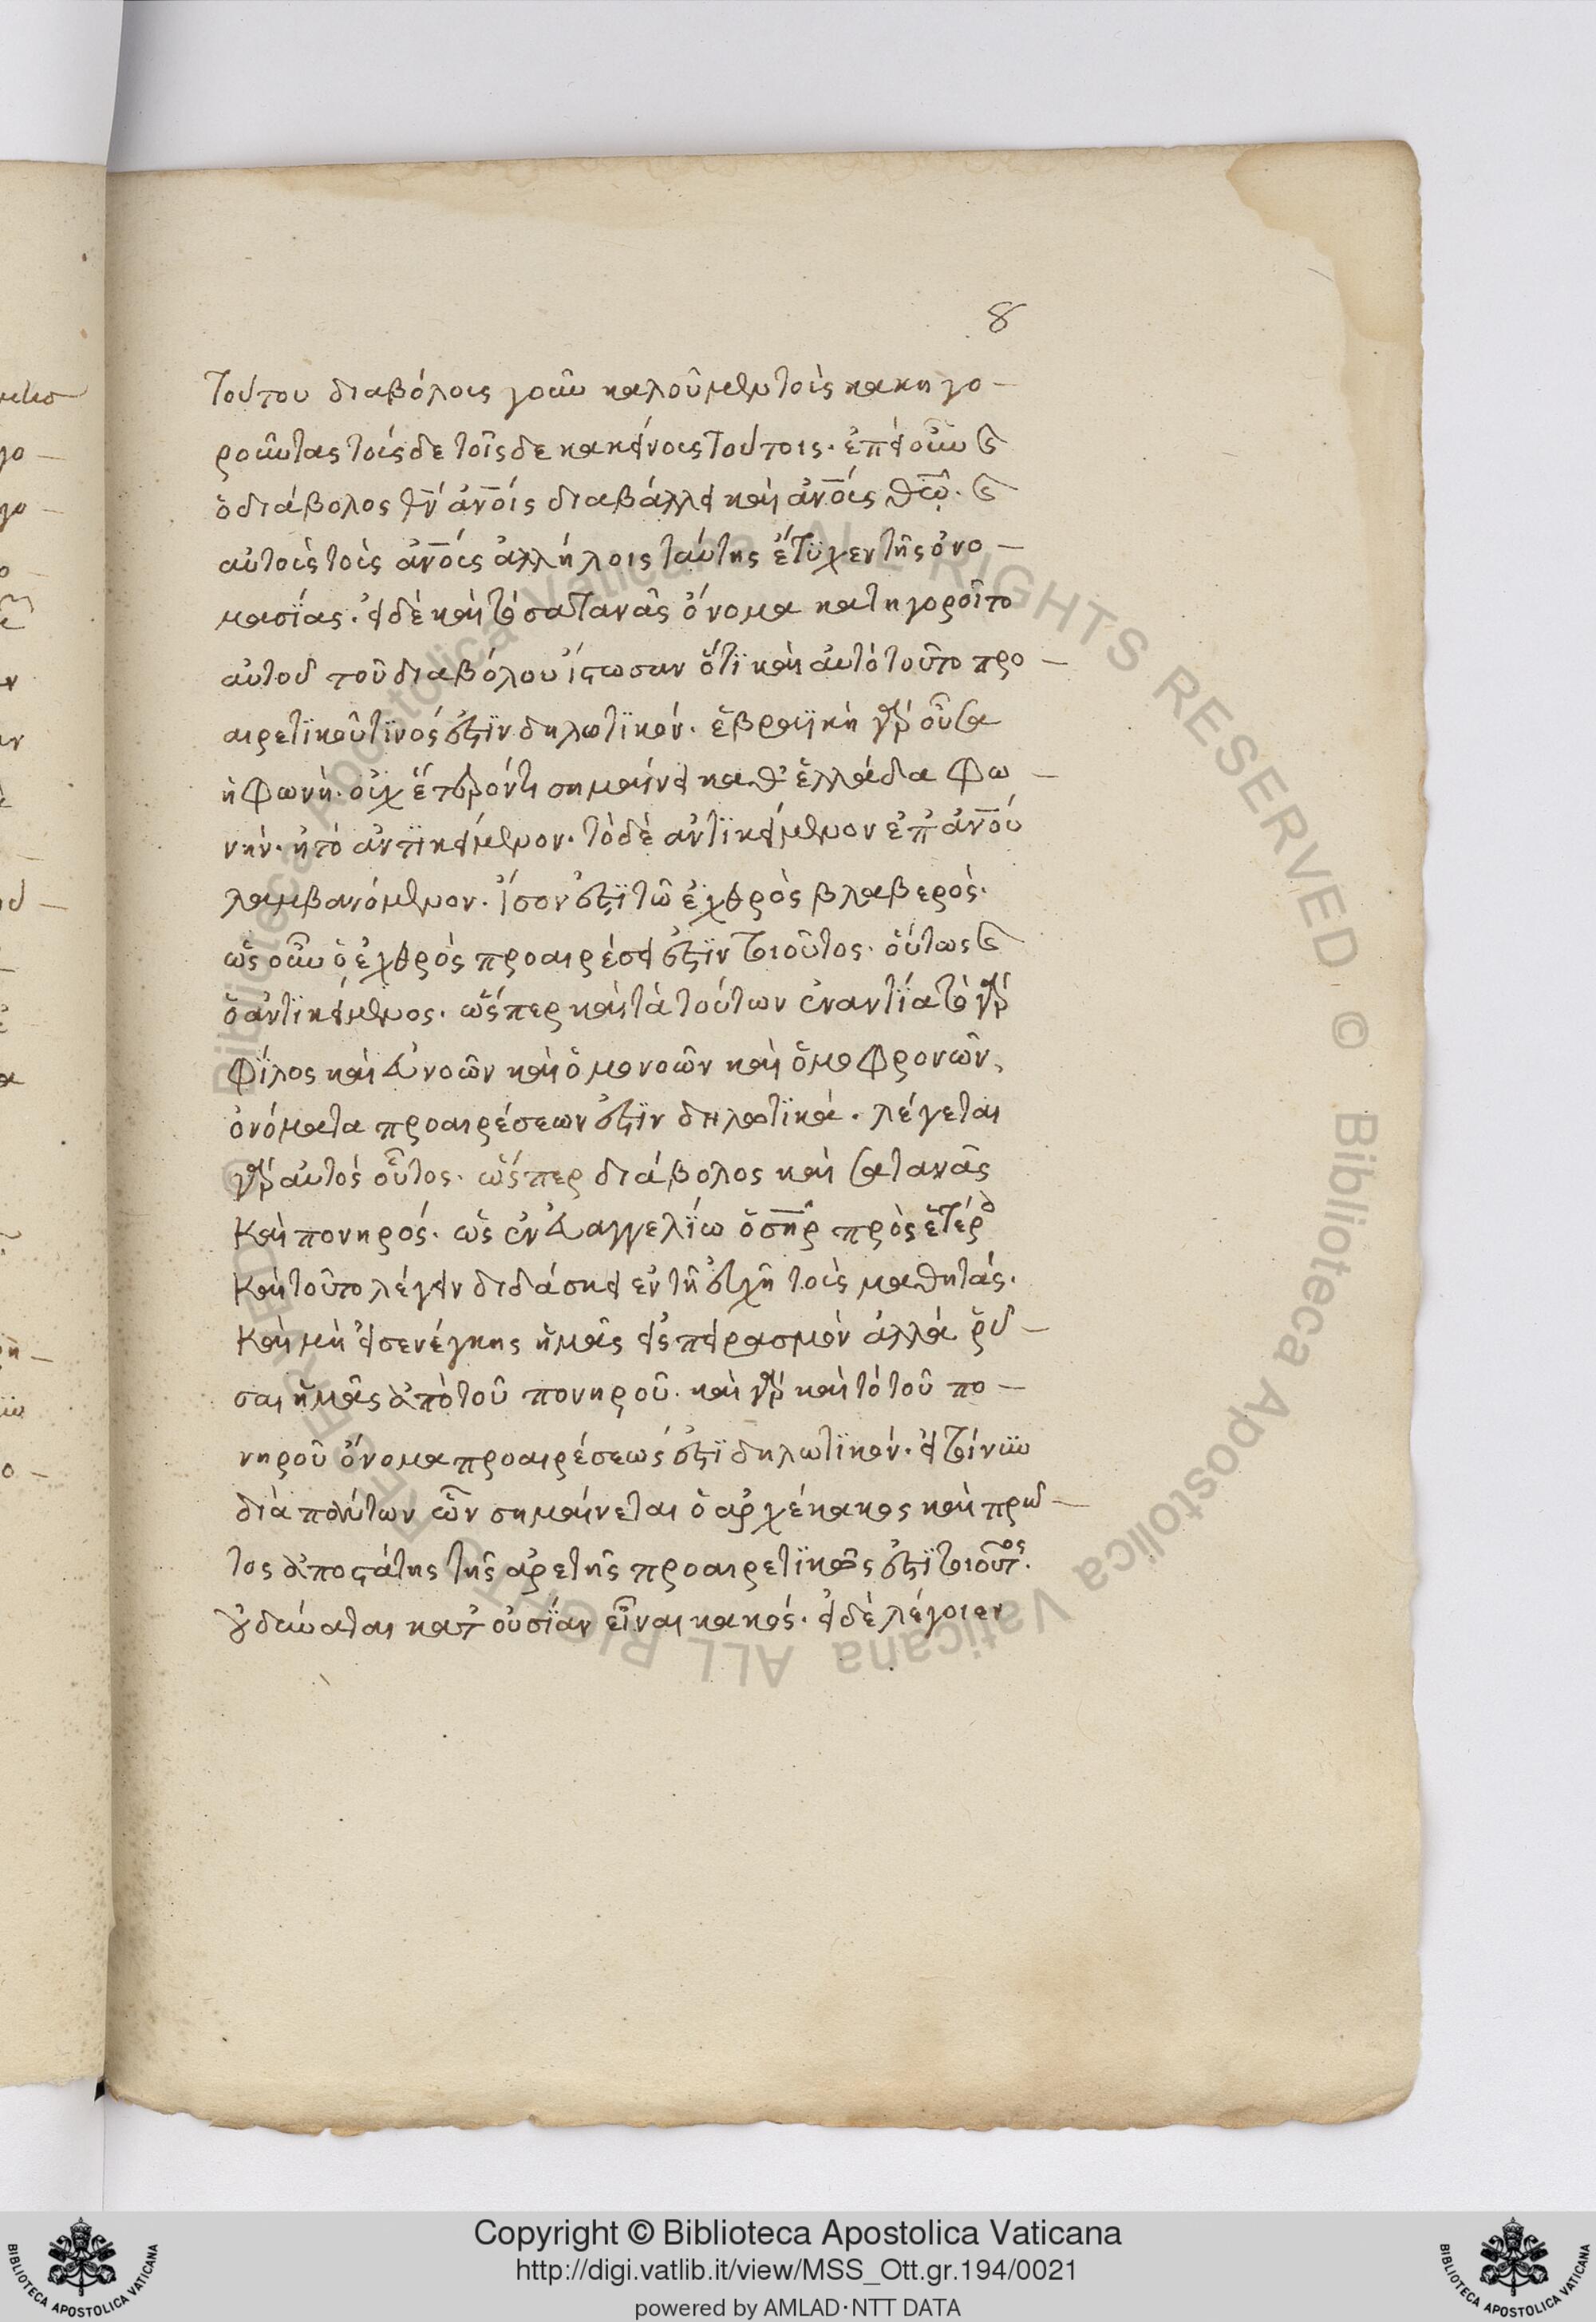 8
τούτου διαβόλους γοῦν καλοῦμεν τοὺς κακηγο-
ροῦντας τούσδε τοῖσδε κακείνους τούτοις. ἐπεὶ οὖν καὶ
ὁ διάβολος θν ἀνοις διαβάλλει καὶ ἀνους θῶ. καὶ
αὐτοὺς τοὺς ἀνους ἀλλήλοις ταύτης ἔτυχεν τῆς ὀνο-
μασίας. εἰ δὲ καὶ τὸ σατανᾶς ὄνομα κατηγοροῖτο
αὐτοῦ τοῦ διαβόλου ἴστωσαν ὅτι καὶ αὐτὸ τοῦτο προ-
αιρετικοῦ τινός ἐστιν δηλωτικόν. ἑβραϊκὴ γὰρ οὖσα
ἡ φωνὴ. οὐχ ἕτερόν τι σημαίνει καθ' ἑλλάδα φω-
νήν. ἢ τὸ ἀντικείμενον. τὸ δὲ ἀντικείμενον ἐπ' ἀνου
λαμβανόμενον. ἴσον ἐστὶ τῶ ἐχθρὸς βλαβερὸς.
ὡς οὖν ὁ ἐχθρὸς προαιρέσει ἐστὶν τοιοῦτος. οὕτως καὶ
ὁ ἀντικείμενος. ὥσπερ καὶ τὰ τούτων ἐναντία τὸ γὰρ
φίλος καὶ εὐνοῶν καὶ ὁμονοῶν καὶ ὁμοφρονῶν,
ὀνόματα προαιρέσεων ἐστὶν δηλωτικά. λέγεται
γὰρ αὐτὸς οὗτος. ὥσπερ διάβολος καὶ σατανᾶς
καὶ πονηρός. ὡς ἐν εὐαγγελίω ὁ σηρ πρὸς ἑτέροις
καὶ τοῦτο λέγειν διδάσκει ἐν τῆ εὐχῆ τοὺς μαθητάς.
καὶ μὴ εἰσενέγκης ἡμᾶς εἰς πειρασμὸν ἀλλὰ ῥῦ-
σαι ἡμᾶς ἀπὸ τοῦ πονηροῦ. καὶ γὰρ καὶ τὸ τοῦ πο-
νηροῦ ὄνομα προαιρέσεώς ἐστι δηλωτικόν. εἰ τοίνυν
διὰ πάντων ὧν σημαίνεται ὁ ἀρχέκακος καὶ πρῶ-
τος ἀποστάτης τῆς ἀρετῆς προαιρετικῶς ἐστὶ τοιοῦτος.
οὐ δύναται κατ' οὐσίαν εἶναι κακός. εἰ δὲ λέγοιεν
Copyright © Biblioteca Apostolica Vaticana
http://digi.vatlib.it/view/MSS_Ott.gr.194/0021
powered by AMLAD·NTT DATA